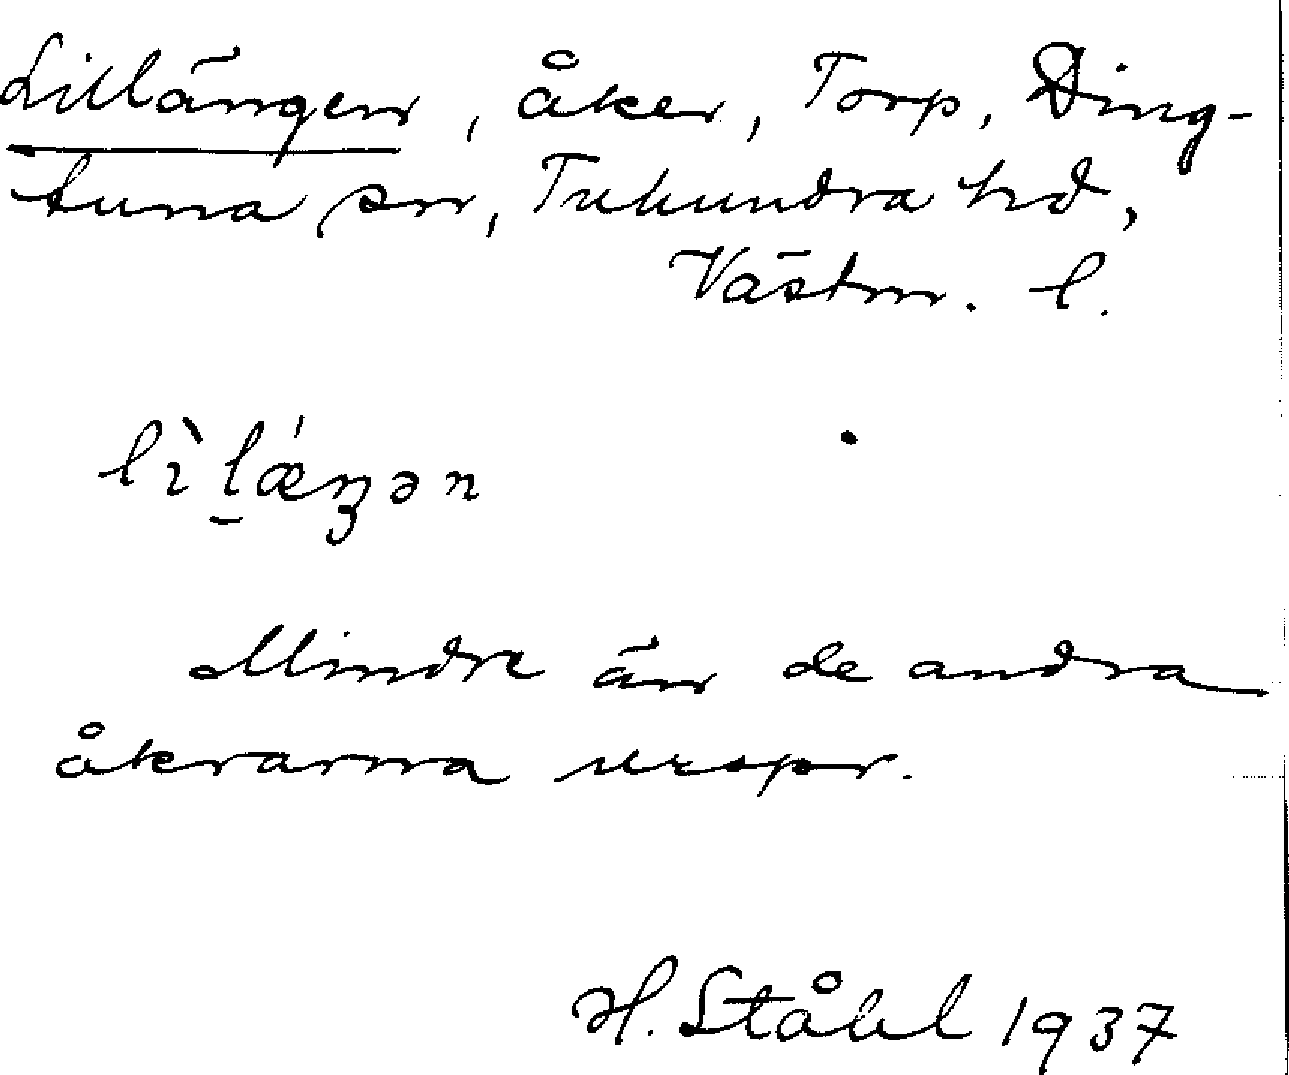 Lillängen, åker, Torp, Ding-
tuna sn, Tuhundra hd,
Västm. l.
lìḷǽŋən
Mindre än de andra
åkrarna urspr.
H. Ståhl 1937